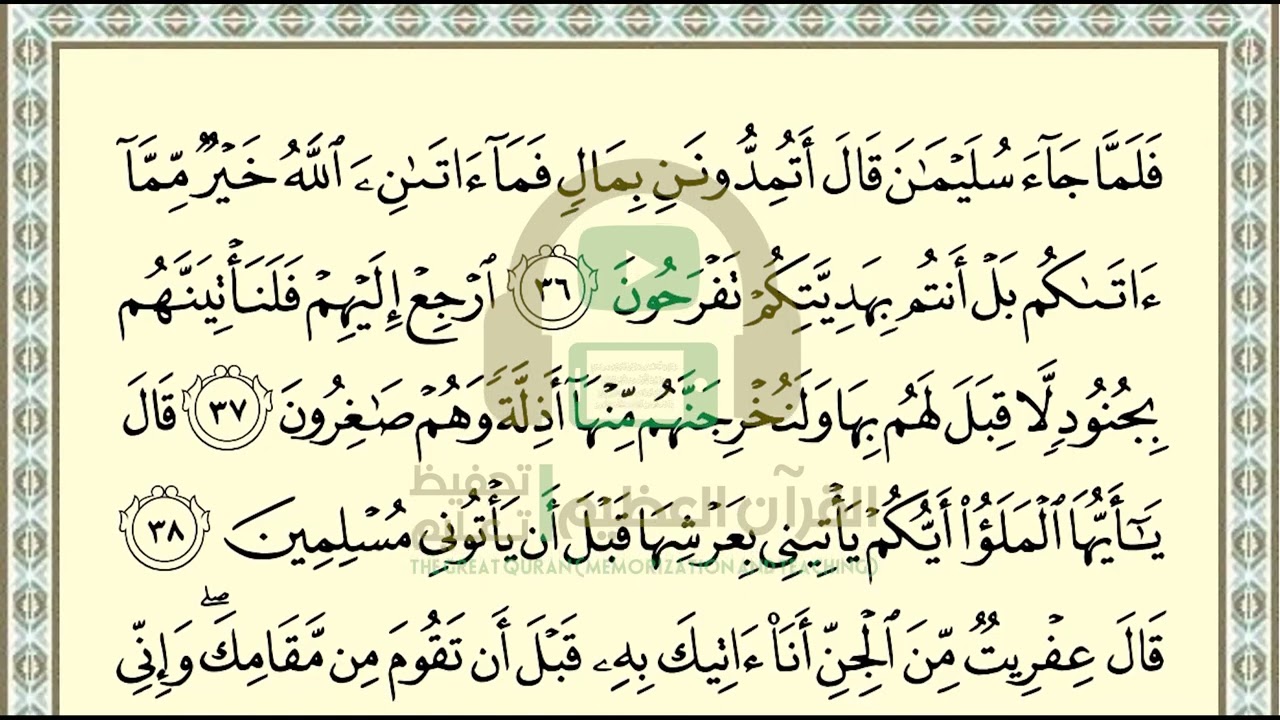 فَلَمَّا جَآءَ سُلَيۡمَٰنَ قَالَ أَتُمِدُّونَنِ بِمَالٖ فَمَآ ءَاتَىٰنِۦَ ٱللَّهُ خَيۡرٞ مِّمَّآ
ءَاتَىٰكُم بَلۡ أَنتُم بِهَدِيَّتِكُمۡ تَفۡرَحُونَ ٣٦ ٱرۡجِعۡ إِلَيۡهِمۡ فَلَنَأۡتِيَنَّهُم
بِجُنُودٖ لَّا قِبَلَ لَهُم بِهَا وَلَنُخۡرِجَنَّهُم مِّنۡهَآ أَذِلَّةٗ وَهُمۡ صَٰغِرُونَ ٣٧ قَالَ
يَٰٓأَيُّهَا ٱلۡمَلَؤُاْ أَيُّكُمۡ يَأۡتِينِي بِعَرۡشِهَا قَبۡلَ أَن يَأۡتُونِي مُسۡلِمِينَ ٣٨
قَالَ عِفۡرِيتٞ مِّنَ ٱلۡجِنِّ أَنَا۠ ءَاتِيكَ بِهِۦ قَبۡلَ أَن تَقُومَ مِن مَّقَامِكَۖ وَإِنِّي
القرآن العظيم تحفيظ تعليم
THE GREAT QURAN (MEMORIZATION AND TEACHING)